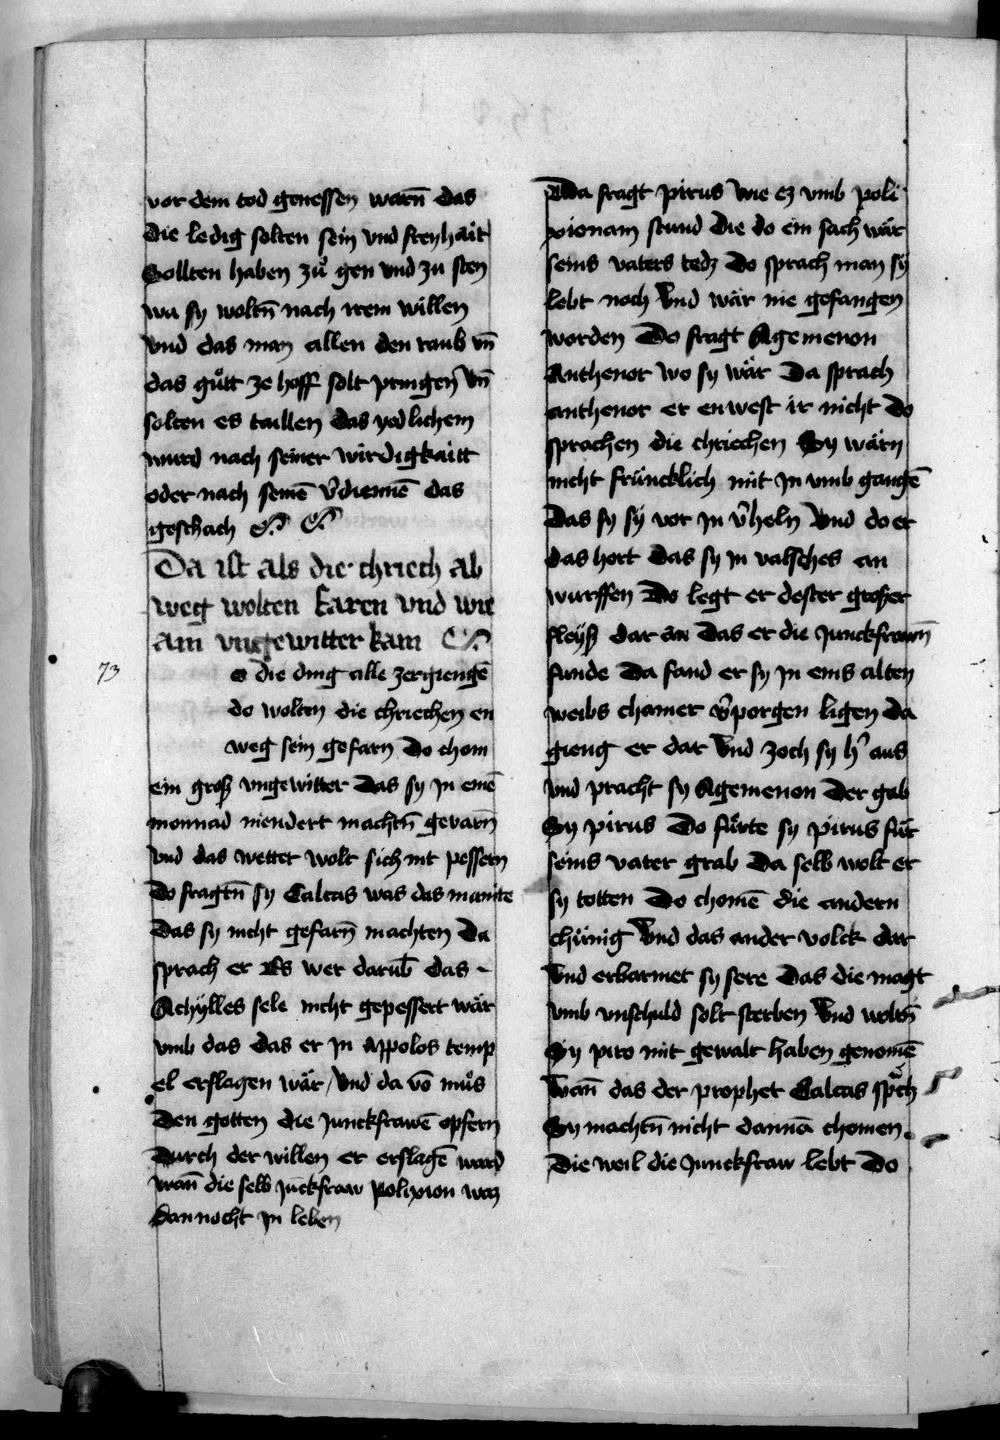 vor dem tod genessen warn̄ das
die ledig solten sein vnd freyhait
Sollten haben zů gen vnd zu sten
wa sy woltn̄ nach irem willen
vnd das man allen den raub vn̄
das gůtt ze hoff solt pringen vn̄
solten es taillen das yedlichem
wurd nach seiner wirdigkaitt
oder nach seinē v̄diennē das
geschach
Da ist als die chriech ab
weg wolten karen vnd wie
ain vngewitter kam
73
o die ding alle zergiengē
do wolten die chriechen en
weg sein gefarn Do chom
ein groß vngewitter Das sy jn einē
monnad niendert machtn̄ gevarn̄
vnd das wetter wolt sich nit pessern
Do fragtn̄ sy Calcas was das mainte
Das sy nicht gefarn̄ machten Da
sprach er Es wer darūb das
Achÿlles sele nicht gepessert wär
vmb das das er jn Appolos temp
el erslagen wär / vnd da vō můs
Den gotten die junckfrawē opfern
Durch der willen er erslagē ward
wān die selb jūckfraw polixion waz
dannocht jn leben
Da fragt pirus wie ez vmb poli
xionam stund die do ein sach wär
seins vaters todz Do sprach man sy
lebt noch vnd wär nie gefangen
worden Do fragt Agemenon
Anthenor wo sy wär Da sprach
anthenor er enwest ir nicht Do
sprachen die chriechen Sy wärn
nicht früncklich mit jn vmb gangē
Das sy sÿ vor jn v̄holn vnd do er
das hort das sy jn valsches an
wurffen Do legt er dester großer
fleÿß dar an Das er die junckfrawn̄
funde Da fand er sy jn eins alten
weibs chamer v̄porgen ligen da
gieng er dar vnd zoch sy h̄ aus
vnd pracht sy Agemenon Der gab
Sy pirus Do fürte sy pirus für
seins vater grab Da selb wolt er
sy totten Do chomē die andern
chünig vnd das ander volck dar
vnd erbarmet sy sere Das die magt
vmb vnschuld solt sterben vnd woltn̄
Sy piro mit gewalt haben genomē
wān das der prophet Calcas sp̄ch
Sy machtn̄ nicht dannā chomen
Die weil die junckfraw lebt Do